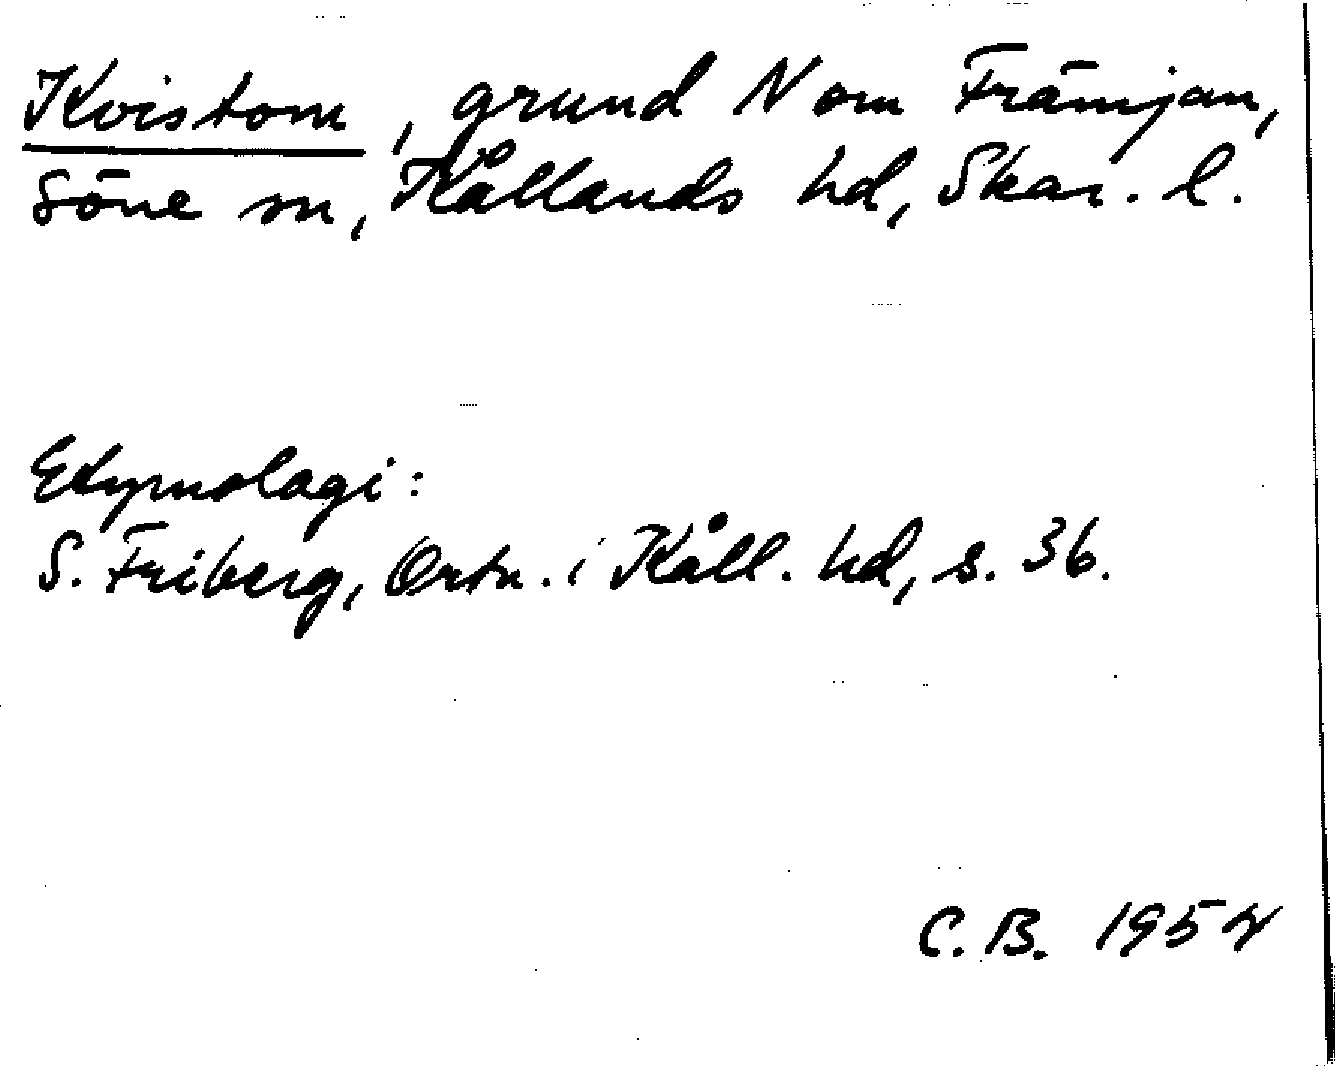 Kvistom, grund N om Främjan,
Söne sn, Kållands hd, Skar. l.
Etymologi:
S. Friberg, Ortn. i Kåll. hd, s. 36.
C. B. 1954